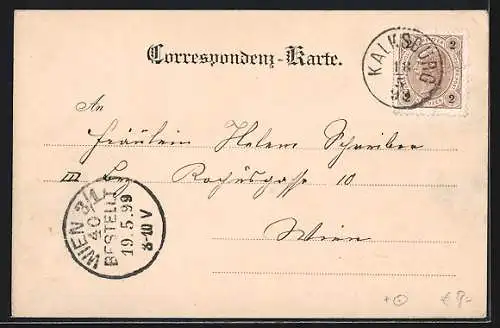 Correspondenz-Karte.
KALKSBURG
18
5
99
2 2
An
Fräulein Helene Schreiber
III Bez. Rochusgasse 10
Wien
WIEN 3/1
40
BESTELLT
19.5.99
8-10V